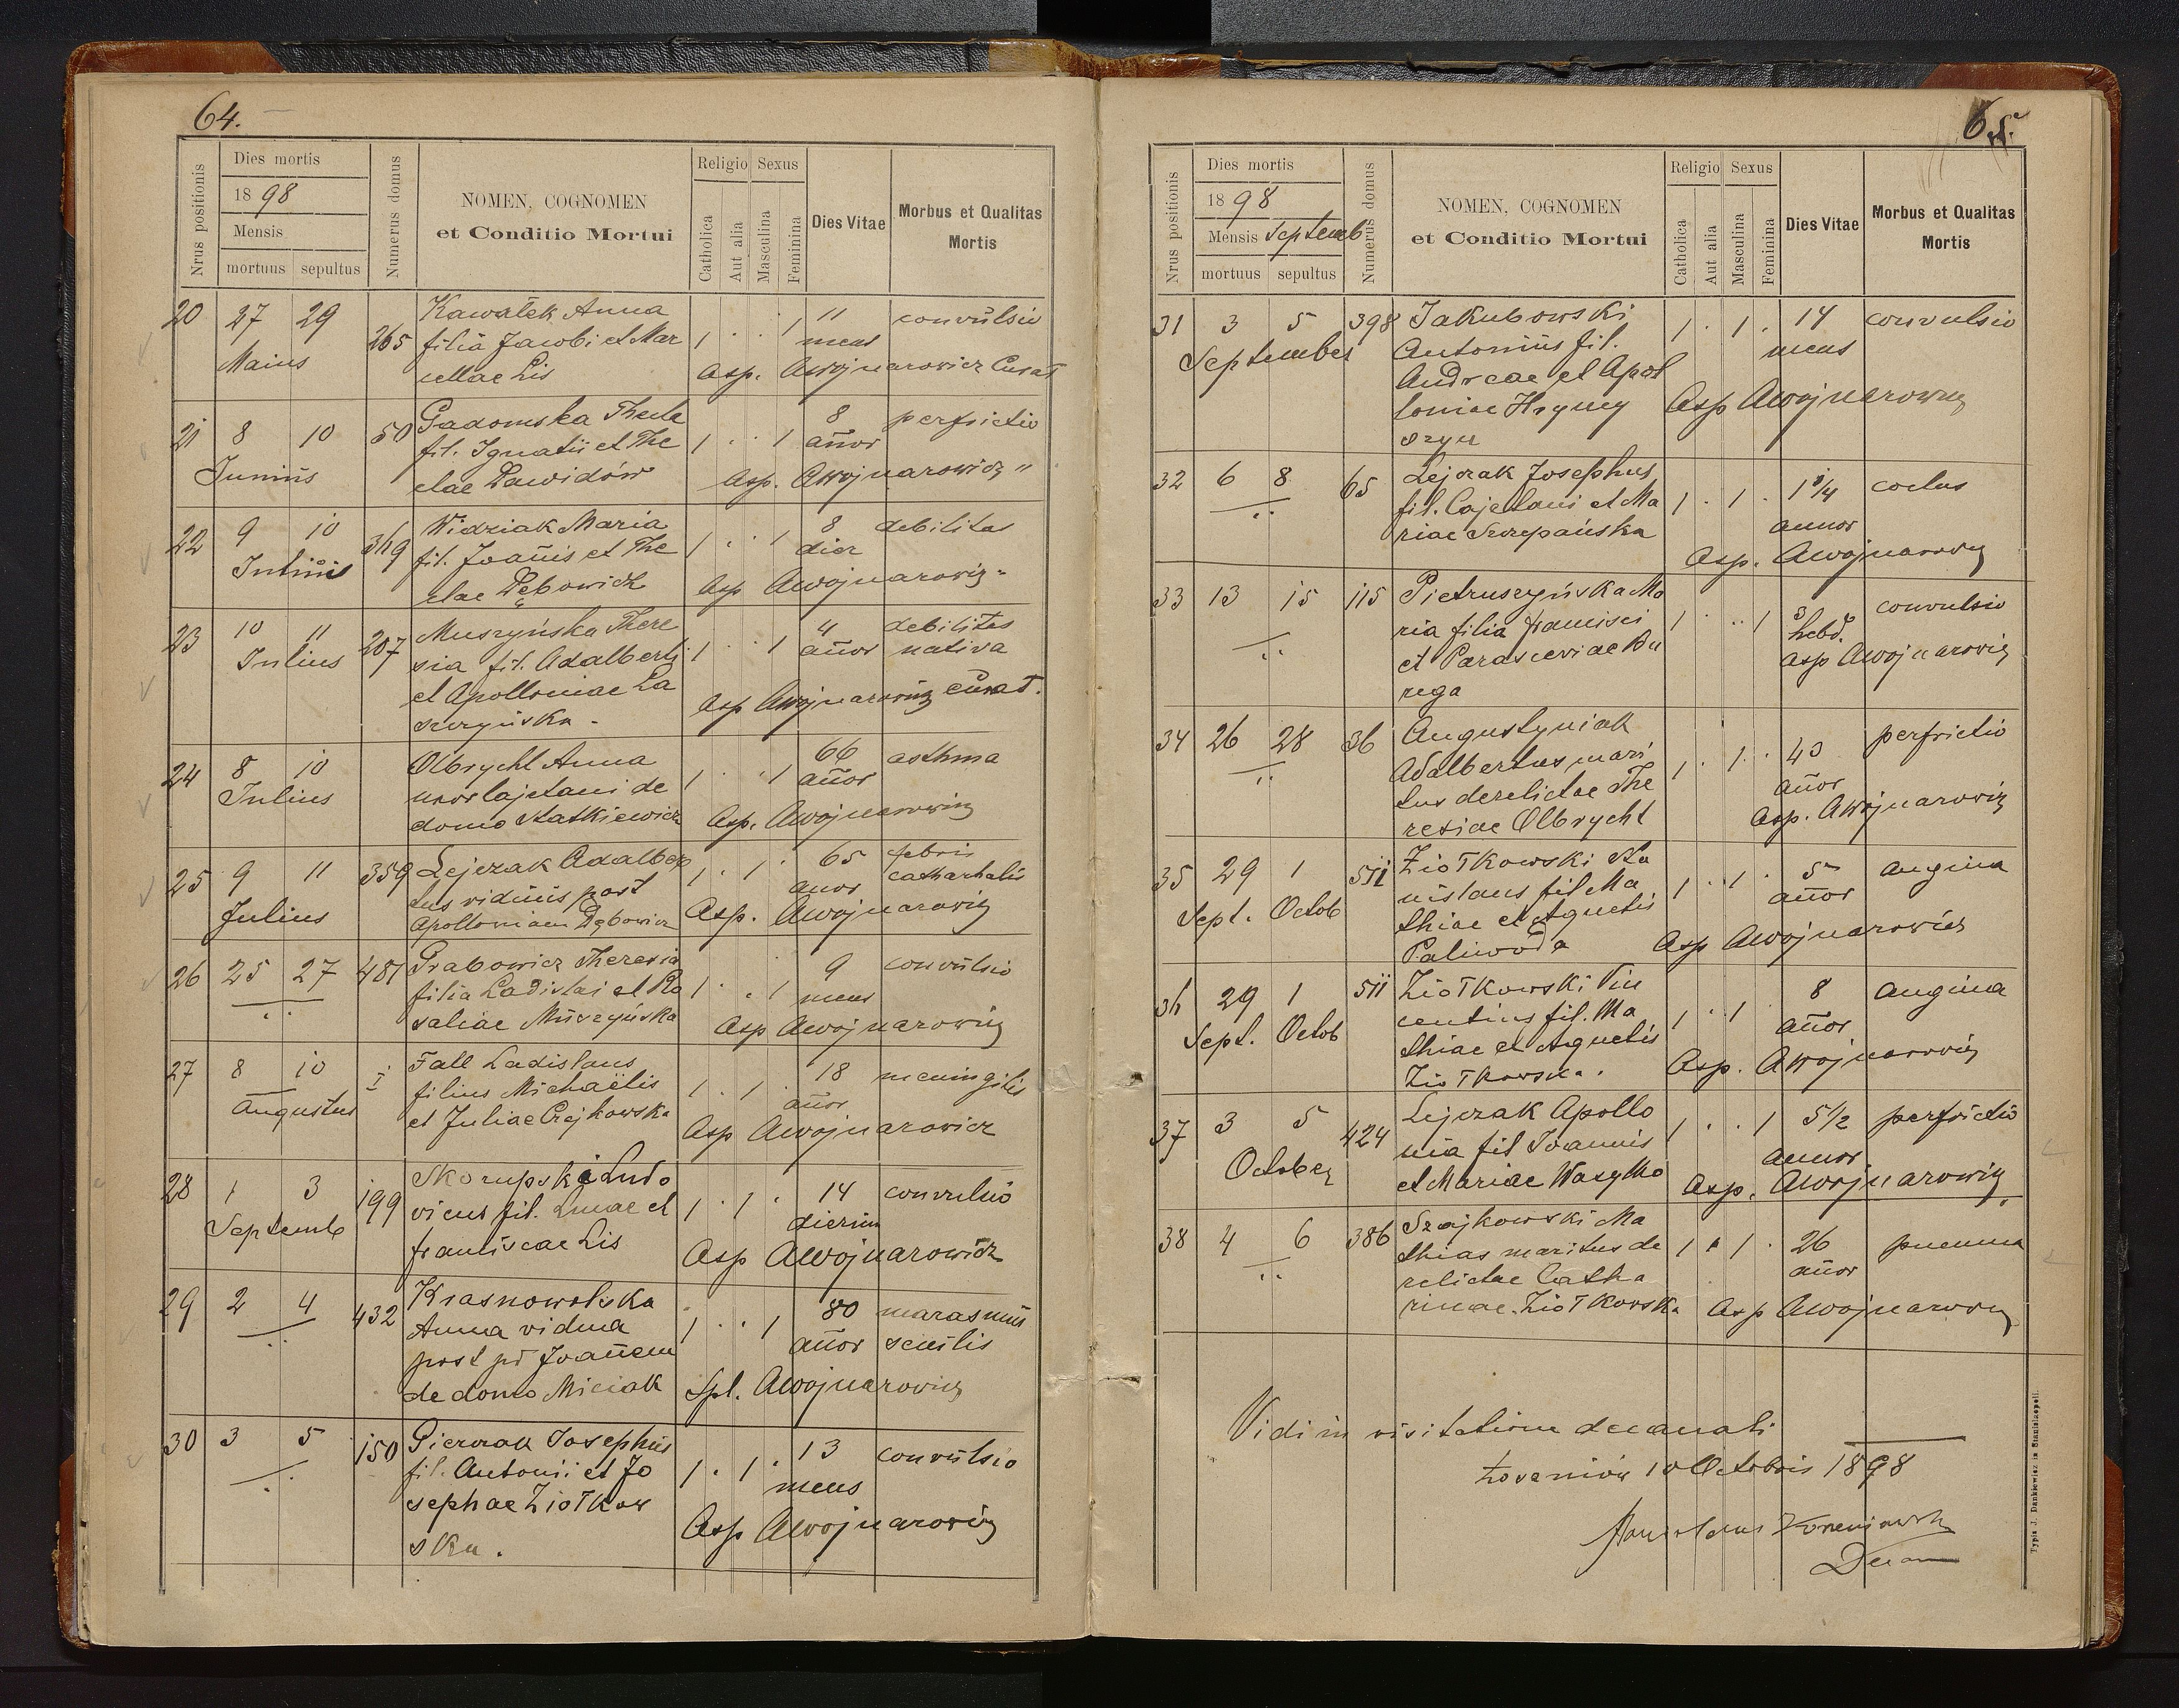 64.
Nrus positionis
Dies mortis
1898
Mensis
mortuus sepultus
Numerus domus
NOMEN, COGNOMEN
et Conditio Mortui
Religio Sexus
Catholica
Aut alia
Masculina
Feminina
Dies Vitae
Morbus et Qualitas
Mortis
20 27 29 265 Kawałek Anna 1 1 11 convulsio
Maius filia Jacobi et Mar mens
ullae Lis Asp. AWojnarowicz Curat
21 8 10 50 Gadomska Thecla 1 1 8 perfrictio
Junius fil. Ignatii et The añor
clae Dawidów Asp. AWojnarowicz "
22 9 10 369 Widziak Maria 1 1 8 debilitas
Julius fil. Joañis et The dier
clae Dębowicz Asp AWojnarowicz "
23 10 11 207 Muszyńska There 1 1 4 debilitas
Julius sia fil. Adalberti añor nativa
et Apolloniae La Asp AWojnarowicz curat.
szczyńska
24 8 10 Olbrycht Anna 1 1 66 asthma
Julius uxor Cajetani de añor
domo Statkiewicz Asp. AWojnarowicz
25 9 11 359 Lejczak Adalber 1 1 65 febris
Julius tus viduus post anor catharhalis
Apolloniam Dębowicz Asp. AWojnarowicz
26 25 27 487 Grabowicz Theresia 1 1 9 convulsio
filia Ladislai et Ro mens
saliae Muszyńska Asp AWojnarowicz
27 8 10 1 Fall Ladislaus 1 1 18 meningitis
Augustus filius Michaëlis añor
et Juliae Czajkowska Asp AWojnarowicz
28 1 3 199 Skorupski Ludo 1 1 14 convulsio
Septemb vicus fil. Lucae et dierum
franciscae Lis Asp AWojnarowicz
29 2 4 432 Krasnowolska 1 1 80 marasmus
Anna vidua añor senilis
post pd Joañem
de domo Miciak Spl. AWojnarowicz
30 3 5 150 Pierzak Josephus 1 1 13 convulsio
fil. Antonii et Jo mens
sephae Ziołkow Asp AWojnarowicz
ska.
65.
Nrus positionis
Dies mortis
1898
Mensis Septemb
mortuus sepultus
Numerus domus
NOMEN, COGNOMEN
et Conditio Mortui
Religio Sexus
Catholica
Aut alia
Masculina
Feminina
Dies Vitae
Morbus et Qualitas
Mortis
31 3 5 398 Jakubowski 1 1 14 convulsio
September Antonius fil. mens
Andreae et Apol
loniae Hryncy Asp AWojnarowicz
szyn
32 6 8 65 Lejczak Josephus 1 1 1 3/4 coctus
fil. Cajetani et Ma annor
riae Szczepańska Asp. AWojnarowicz
33 13 15 115 Pietruszyńska Ma 1 1 3 convulsio
ria filia francisci hebd.
et Parasceviae Bu Asp AWojnarowicz
rega
34 26 28 36 Augustyniak 1 1 43 perfrictio
Adalbertus mari añor
tus derelictae The Asp. AWojnarowicz
resiae Olbrycht
35 29 1 511 Ziołkowski Sta 1 1 5 angina
Sept. Octob nislaus fil Ma añor
thiae et Agnetis
Paliwoda Asp AWojnarowicz
36 29 1 511 Ziołkowski Vin 1 1 8 angina
Sept. Octob centius fil. Ma añor
thiae et Agnetis Asp. AWojnarowicz
Ziołkowska.
37 3 5 424 Lejczak Apollo 1 1 5 1/2 perfrictio
October nia fil Joannis annor
et Mariae Wasylko Asp. AWojnarowicz
38 4 6 386 Szajkowski Ma 1 1 26 pneuma
thias maritus de añor
relictae Catha
rinae Ziołkowska Asp AWojnarowicz
Vidi in visitatione decanali
10 Octobris 1898
Decan
Typis J. Dankiewicz in Stanislaopoli.